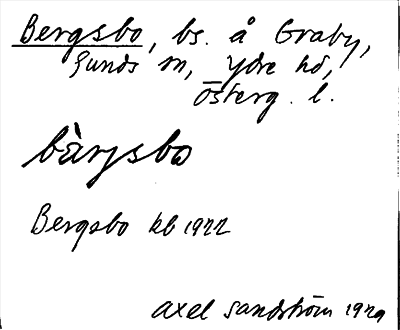 Bergsbo, bs. å Graby,
Sunds sn, Ydre hd,
Österg. l.
bàrjsbo
Bergsbo kb 1922
Axel Sandström 1929